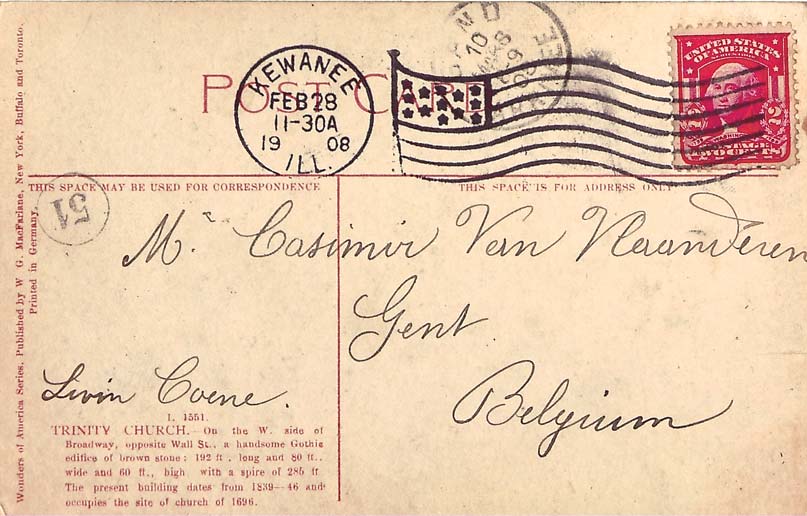 POST CARD
KEWANEE
FEB 28
11-30A
19 08
ILL.
10
MARS
UNITED STATES
OF AMERICA
2 2
TWO CENTS
THIS SPACE MAY BE USED FOR CORRESPONDENCE
THIS SPACE IS FOR ADDRESS ONLY
51
Mr. Casimir Van Vlaanderen
Gent
Belgium
Livin Coene.
L. 1551.
TRINITY CHURCH. On the W. side of
Broadway, opposite Wall St., a handsome Gothic
edifice of brown stone: 192 ft. long and 80 ft.
wide and 60 ft., high with a spire of 285 ft
The present building dates from 1839—46 and
occupies the site of church of 1696.
Wonders of America Series. Published by W. G. MacFarlane, New York, Buffalo and Toronto.
Printed in Germany.